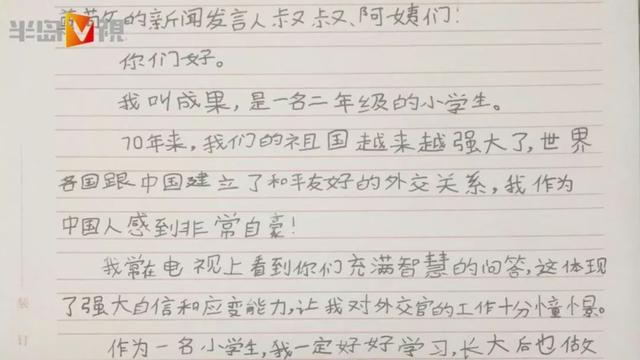 半岛V视
的新闻发言人叔叔、阿姨们：
你们好。
我叫成果，是一名二年级的小学生。
70年来，我们的祖国越来越强大了，世界
各国跟中国建立了和平友好的外交关系，我作为
中国人感到非常自豪！
我常在电视上看到你们充满智慧的问答，这体现
了强大自信和应变能力，让我对外交官的工作十分憧憬。
作为一名小学生，我一定好好学习，长大后也做
装
订